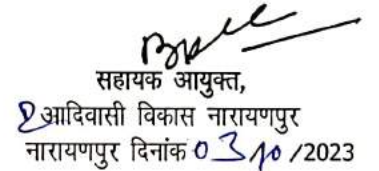 सहायक आयुक्त,
आदिवासी विकास नारायणपुर
नारायणपुर दिनांक 03/10/2023